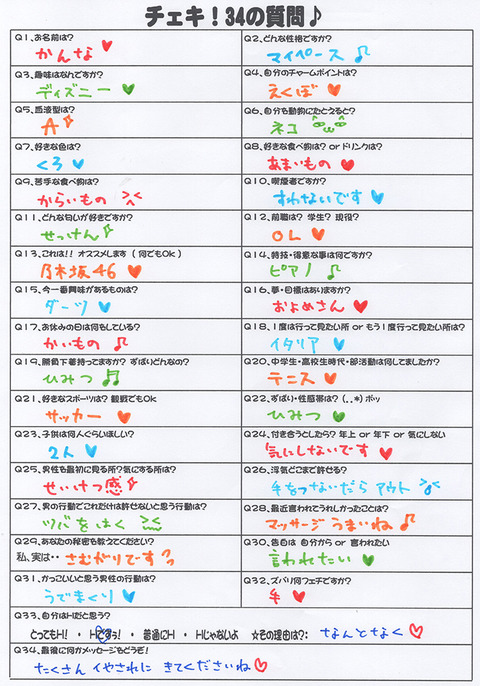 チェキ！34の質問♪
Q1、お名前は？
かんな♥
Q2、どんな性格ですか？
マイペース♫
Q3、趣味はなんですか？
ディズニー♥
Q4、自分のチャームポイントは？
えくぼ♥
Q5、血液型は？
A
Q6、自分を動物にたとえると？
ネコ
Q7、好きな色は？
くろ♥
Q8、好きな食べ物は？ or ドリンクは？
あまいもの♥
Q9、苦手な食べ物は？
からいもの
Q10、喫煙者ですか？
すわないです♥
Q11、どんな匂いが好きですか？
せっけん
Q12、前職は？ 学生？ 現役？
OL♥
Q13、これは！！ オススメします（何でもOk）
乃木坂46♥
Q14、特技・得意な事は何ですか？
ピアノ♪
Q15、今一番興味があるものは？
ダーツ♥
Q16、夢・目標はありますか？
およめさん♥
Q17、お休みの日は何をしている？
かいもの♫
Q18、1度は行って見たい所 or もう1度行って見たい所は？
イタリア♥
Q19、勝負下着持ってますか？ ずばりどんなの？
ひみつ♬
Q20、中学生・高校生時代・部活動は何してましたか？
テニス♥
Q21、好きなスポーツは？ 観戦でもOk
サッカー♥
Q22、ずばり・性感帯は？ (．．*) ポッ
ひみつ♥
Q23、子供は何人ぐらいほしい？
2人♥
Q24、付き合うとしたら？ 年上 or 年下 or 気にしない
気にしないです♥
Q25、男性を最初に見る所？気にする所は？
せいけつ感
Q26、浮気どこまで許せる？
手をつないだら アウト
Q27、男の行動でこれだけは許せないと思う行動は？
ツバをはく
Q28、最近言われてうれしかったことは？
マッサージ うまいね♫
Q29、あなたの秘密を教えてください？
私、実は・・ さむがりです
Q30、告白は 自分から or 言われたい
言われたい♥
Q31、かっこいいと思う男性の行動は？
うでまくり♥
Q32、ズバリ何フェチですか？
手♥
Q33、自分はHだと思う？
とってもH！ ・ Hですぅ！ ・ 普通にH ・ Hじゃないよ ☆その理由は？： なんとなく♡
Q34、最後に何かメッセージをどうぞ！
たくさん いやされに きてくださいね♡